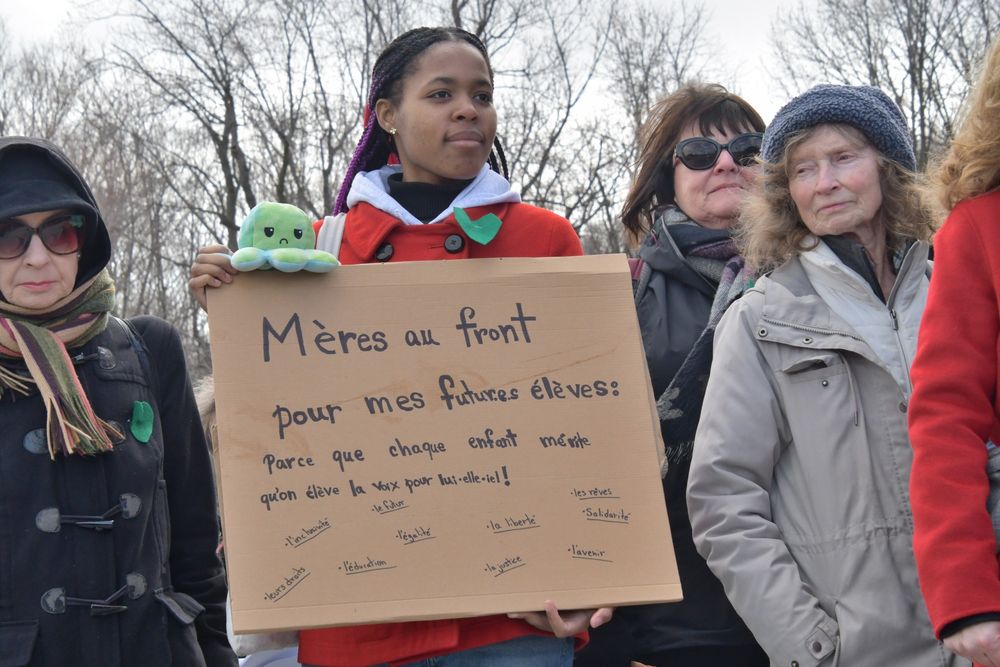 Mères au front
pour mes futur.e.s élèves:
Parce que chaque enfant mérite
qu'on élève la voix pour lui·elle·iel!
·l'inclusivité
·le futur
·l'égalité
·la liberté
·les rêves
·Solidarité
·leurs droits
·l'éducation
·la justice
·l'avenir